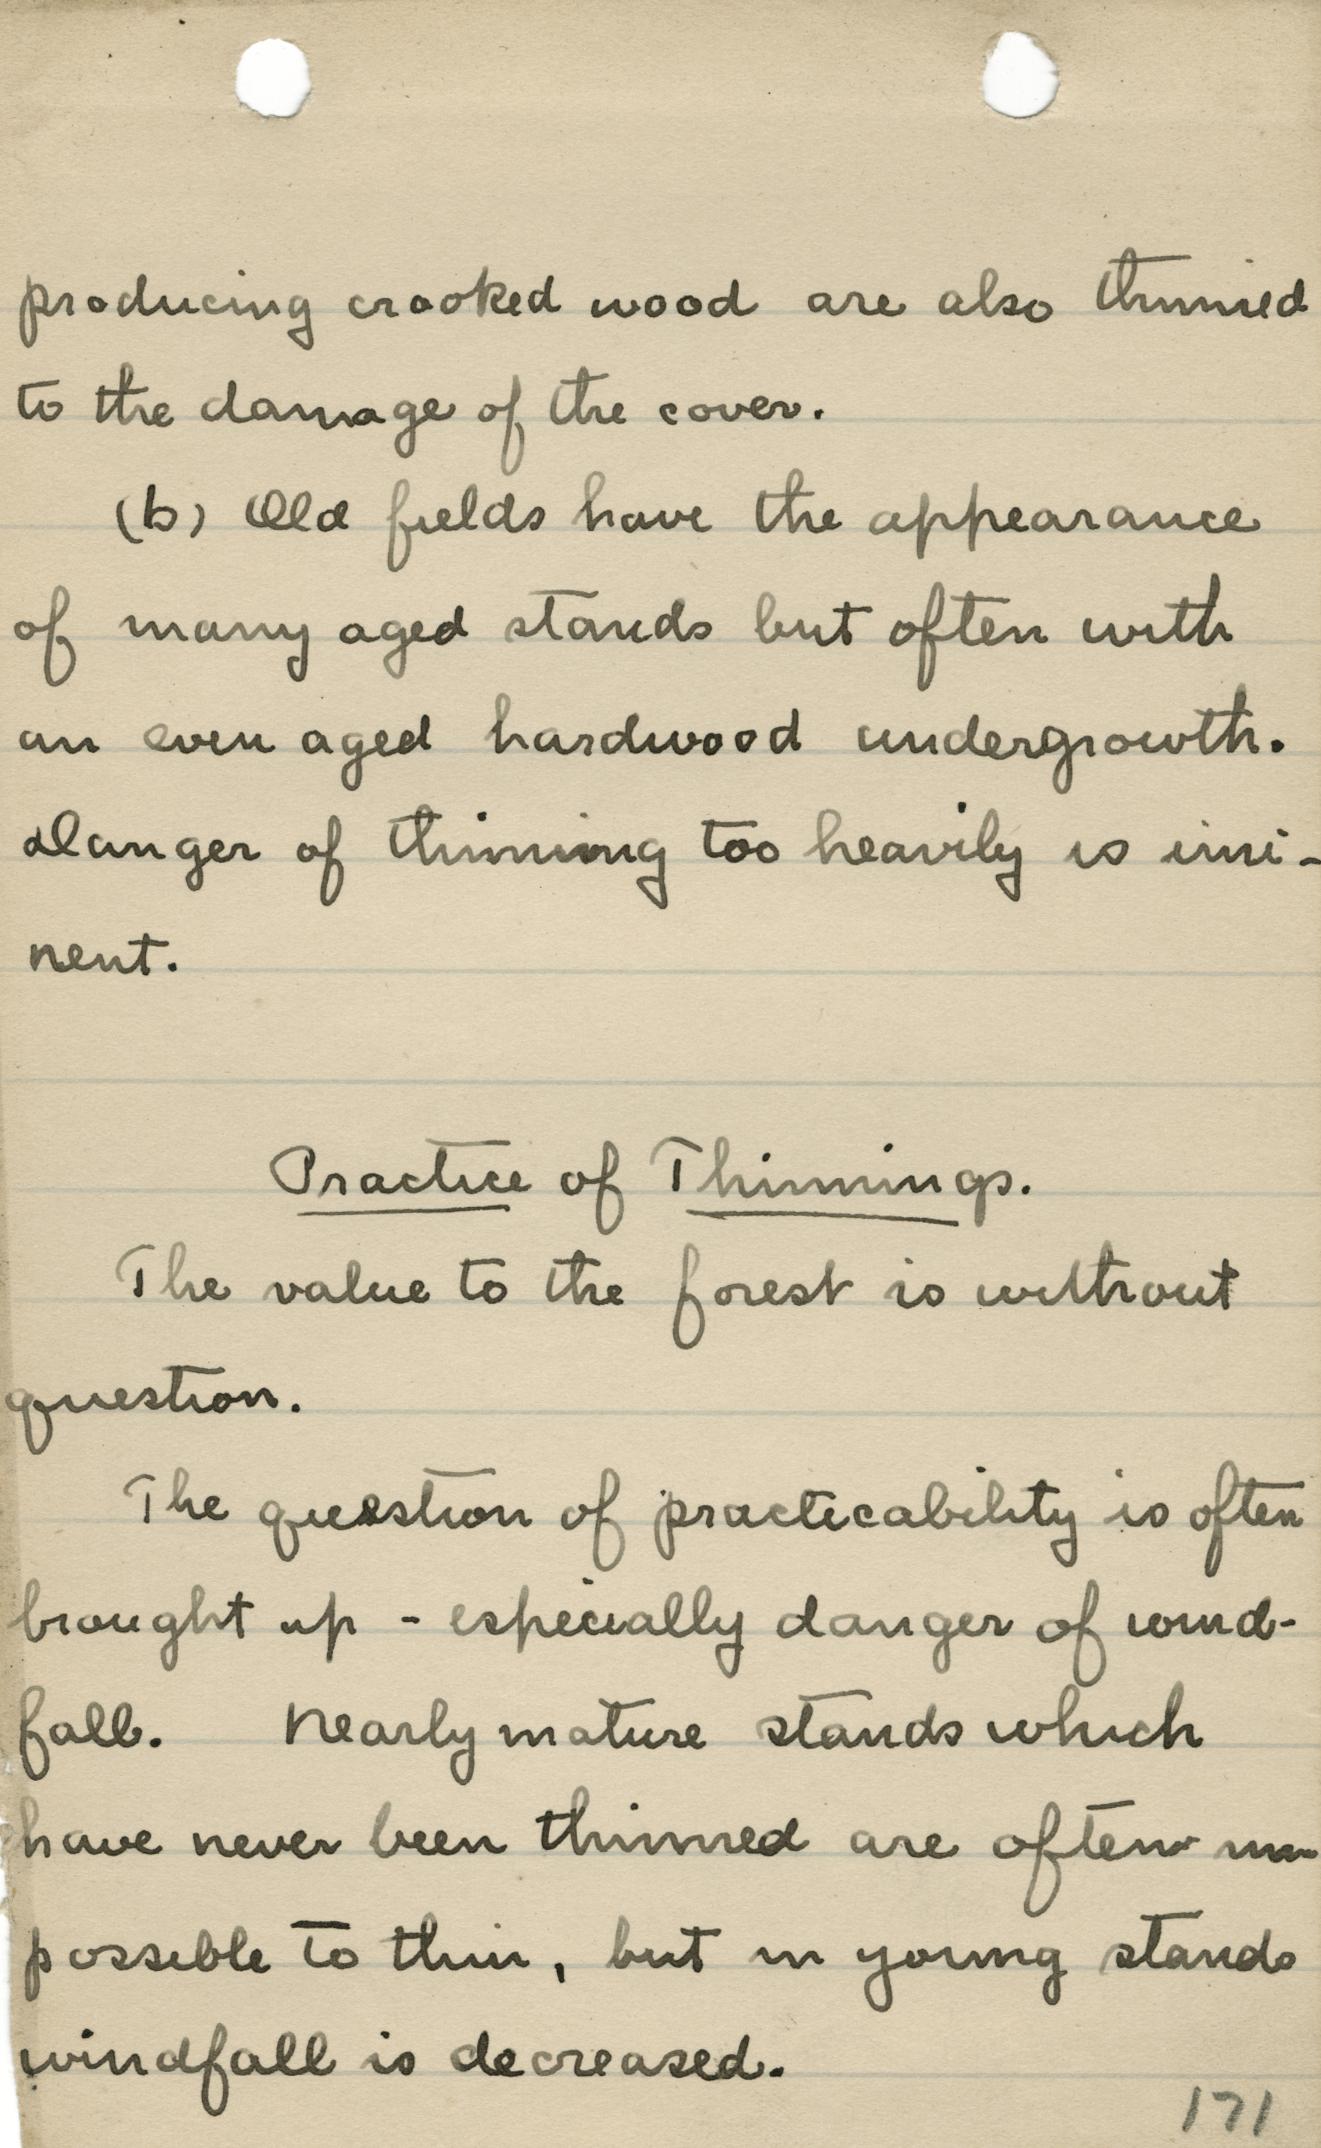 producing crooked wood are also thinned
to the damage of the cover.
(b) Old fields have the appearance
of many aged stands but often with
an even aged hardwood undergrowth.
Danger of thinning too heavily is imi-
nent.
Practice of Thinnings.
The value to the forest is without
question.
The question of practicability is often
brought up - especially danger of wind-
fall. Nearly mature stands which
have never been thinned are often im-
possible to thin, but in young stands
windfall is decreased.
171